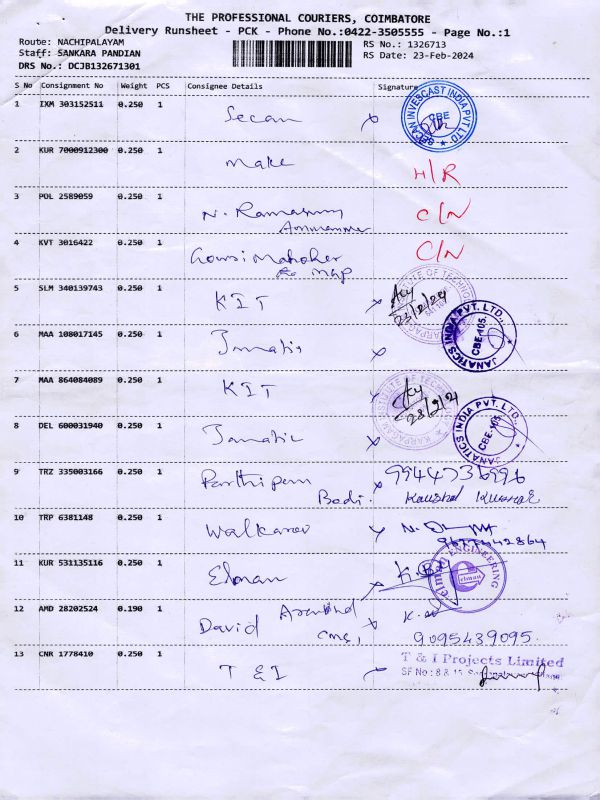 THE PROFESSIONAL COURIERS, COIMBATORE
Delivery Runsheet - PCK - Phone No.:0422-3505555 - Page No.:1
Route: NACHIPALAYAM
RS No.: 1326713
Staff: SANKARA PANDIAN
RS Date: 23-Feb-2024
DRS No.: DCJB132671301
S No Consignment No Weight PCS Consignee Details Signature
1 IXM 303152511 0.250 1 Secan
SECAN INVESCAST INDIA PVT LTD CBE
2 KUR 7000912300 0.250 1 make H/R
3 POL 2589059 0.250 1 N. Ramasamy C/N
4 KVT 3016422 0.250 1 Gowri Manoher C/N
map
5 SLM 340139743 0.250 1 KIT
23/2/24
INSTITUTE OF TECHNOLOGY
JANATICS INDIA PVT. LTD., CBE-105.
6 MAA 108017145 0.250 1 Janatic
7 MAA 864084089 0.250 1 KIT
KARPAGAM INSTITUTE OF TECHNOLOGY
8 DEL 600031940 0.250 1 Janatic
JANATICS INDIA PVT. LTD., CBE-105.
9 TRZ 335003166 0.250 1 Parthipan 9944736996
Badi. Kaushal Kumar
10 TRP 6381148 0.250 1 Walkaroo
11 KUR 531135116 0.250 1 Elman
elman ENGINEERING
elman
12 AMD 28202524 0.190 1 David
9095439095.
13 CNR 1778410 0.250 1 T & I
T & I Projects Limited
SF No: 8 & 15